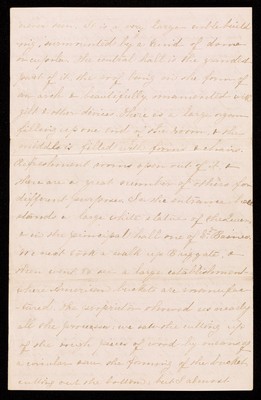 seen. It is a very large noble build
ing, surmounted by a kind of dome
The central hall is the grandest
part of it, the roof being in the form of
an arch & beautifully ornamented with
gilt & other devices. There is a large organ
filling up one end of the room & the
middle is filled with forms & chairs.
Refreshment rooms open out of it &
there are a great number of others for
different purposes. In the entrance hall
stands a large white statue of the Queen
& in the principal hall one of
We next took a walk up Briggate, &
then went to see a large establishment
where American buckets are manufac
tured. The explained to us nearly
all the process, we saw the cutting up
of the rough pieces of wood by means of
a circular saw, the forming of the bucket
cutting out the bottom, but I almost